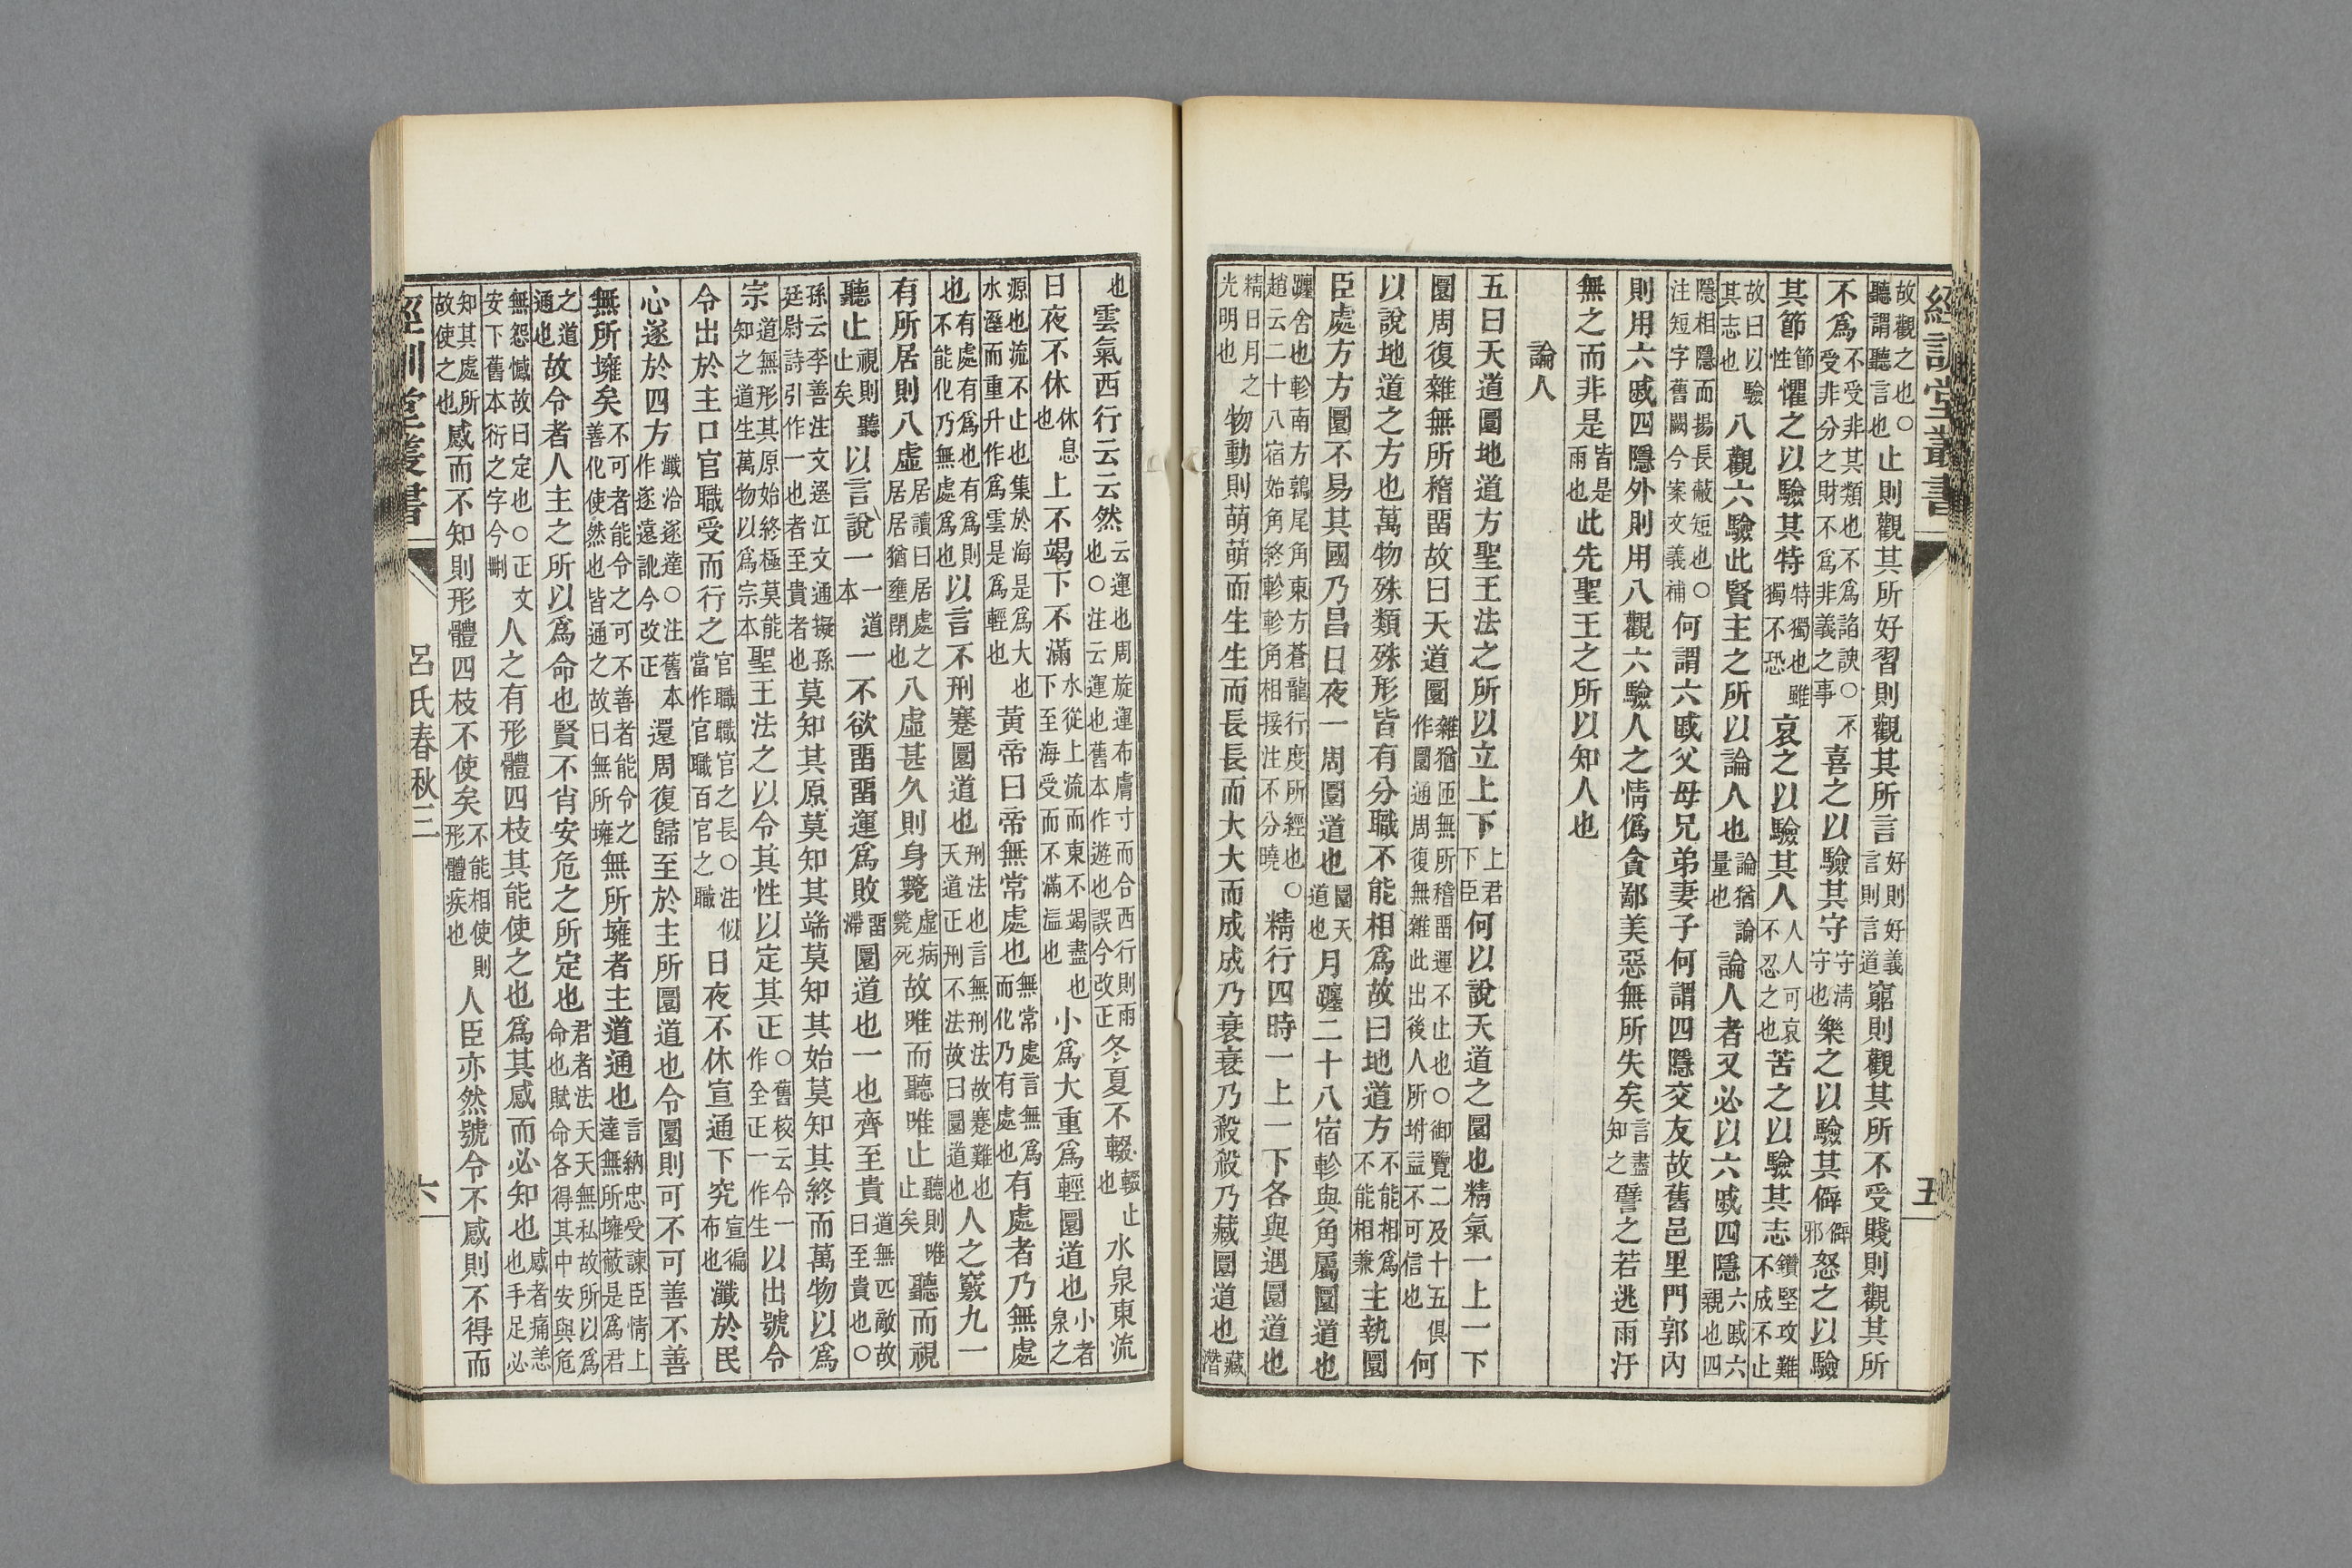 經訓堂叢書
五
故觀之也○聽謂聽言也止則觀其所好習則觀其所言好則好義言則言道窮則觀其所不受賤則觀其所
不爲不受非其類也不爲諂諛○不受非分之財不爲非義之事喜之以驗其守守淸守也樂之以驗其僻僻邪怒之以驗
其節節性懼之以驗其特特獨也雖獨不恐哀之以驗其人人人可哀不忍之也苦之以驗其志鑽堅攻難不成不止
故曰以驗其志也八觀六驗此賢主之所以論人也論猶論量也論人者又必以六戚四隱六戚六親也四
隱相隱而揚長蔽短也○注短字舊闕今案文義補何謂六戚父母兄弟妻子何謂四隱交友故舊邑里門郭內
則用六戚四隱外則用八觀六驗人之情僞貪鄙美惡無所失矣言盡知之譬之若逃雨汙
無之而非是皆是雨也此先聖王之所以知人也
論人
五曰天道圜地道方聖王法之所以立上下上君下臣何以說天道之圜也精氣一上一下
圜周復雜無所稽畱故曰天道圜雜猶匝無所稽畱運不止也○御覽二及十五俱作圜通周復無雜此出後人所坿益不可信也何
以說地道之方也萬物殊類殊形皆有分職不能相爲故曰地道方不能相爲不能相兼主執圜
臣處方方圜不易其國乃昌日夜一周圜道也圜天道也月躔二十八宿軫與角屬圜道也
躔舍也軫南方鶉尾角東方蒼龍行度所經也○趙云二十八宿始角終軫軫角相接注不分曉精行四時一上一下各與遇圜道也
精日月之光明也物動則萌萌而生生而長長而大大而成成乃衰衰乃殺殺乃藏圜道也藏潛
也雲氣西行云云然云運也周旋運布膚寸而合西行則雨也○注云運也舊本作遊也誤今改正冬夏不輟輟止也水泉東流
日夜不休休息也上不竭下不滿水從上流而東不竭盡也下至海受而不滿溢也小爲大重爲輕圜道也小者泉之
源也流不止也集於海是爲大也水溼而重升作爲雲是爲輕也黃帝曰帝無常處也無常處言無爲而化乃有處也有處者乃無處
也有處有爲也有爲則不能化乃無處爲也以言不刑蹇圜道也刑法也言無刑法故蹇難也天道正刑不法故曰圜道也人之竅九一
有所居則八虛居讀曰居處之居居猶壅閉也八虛甚久則身斃虛病斃死故唯而聽唯止聽則唯止矣聽而視
聽止視則聽止矣以言說一一道本一不欲畱畱運爲敗畱滯圜道也一也齊至貴道無匹敵故曰至貴也○
孫云李善注文選江文通擬孫廷尉詩引作一也者至貴者也莫知其原莫知其端莫知其始莫知其終而萬物以爲
宗道無形其原始終極莫能知之道生萬物以爲宗本聖王法之以令其性以定其正○舊校云令一作全正一作生以出號令
令出於主口官職受而行之官職職官之長○注似當作官職百官之職日夜不休宣通下究宣徧布也瀸於民
心遂於四方瀸洽遂達○注舊本作遂遠訛今改正還周復歸至於主所圜道也令圜則可不可善不善
無所壅矣不可者能令之可不善者能令之善化使然也皆通之故曰無所壅無所壅者主道通也言納忠受諫臣情上達無所壅蔽是爲君
之道通也故令者人主之所以爲命也賢不肖安危之所定也君者法天天無私故所以爲命也賦命各得其中安與危
無怨憾故曰定也○正文安下舊本衍之字今刪人之有形體四枝其能使之也爲其感而必知也感者痛恙也手足必
知其處所故使之也感而不知則形體四枝不使矣不能相使則形體疾也人臣亦然號令不感則不得而
經訓堂叢書
呂氏春秋三
六